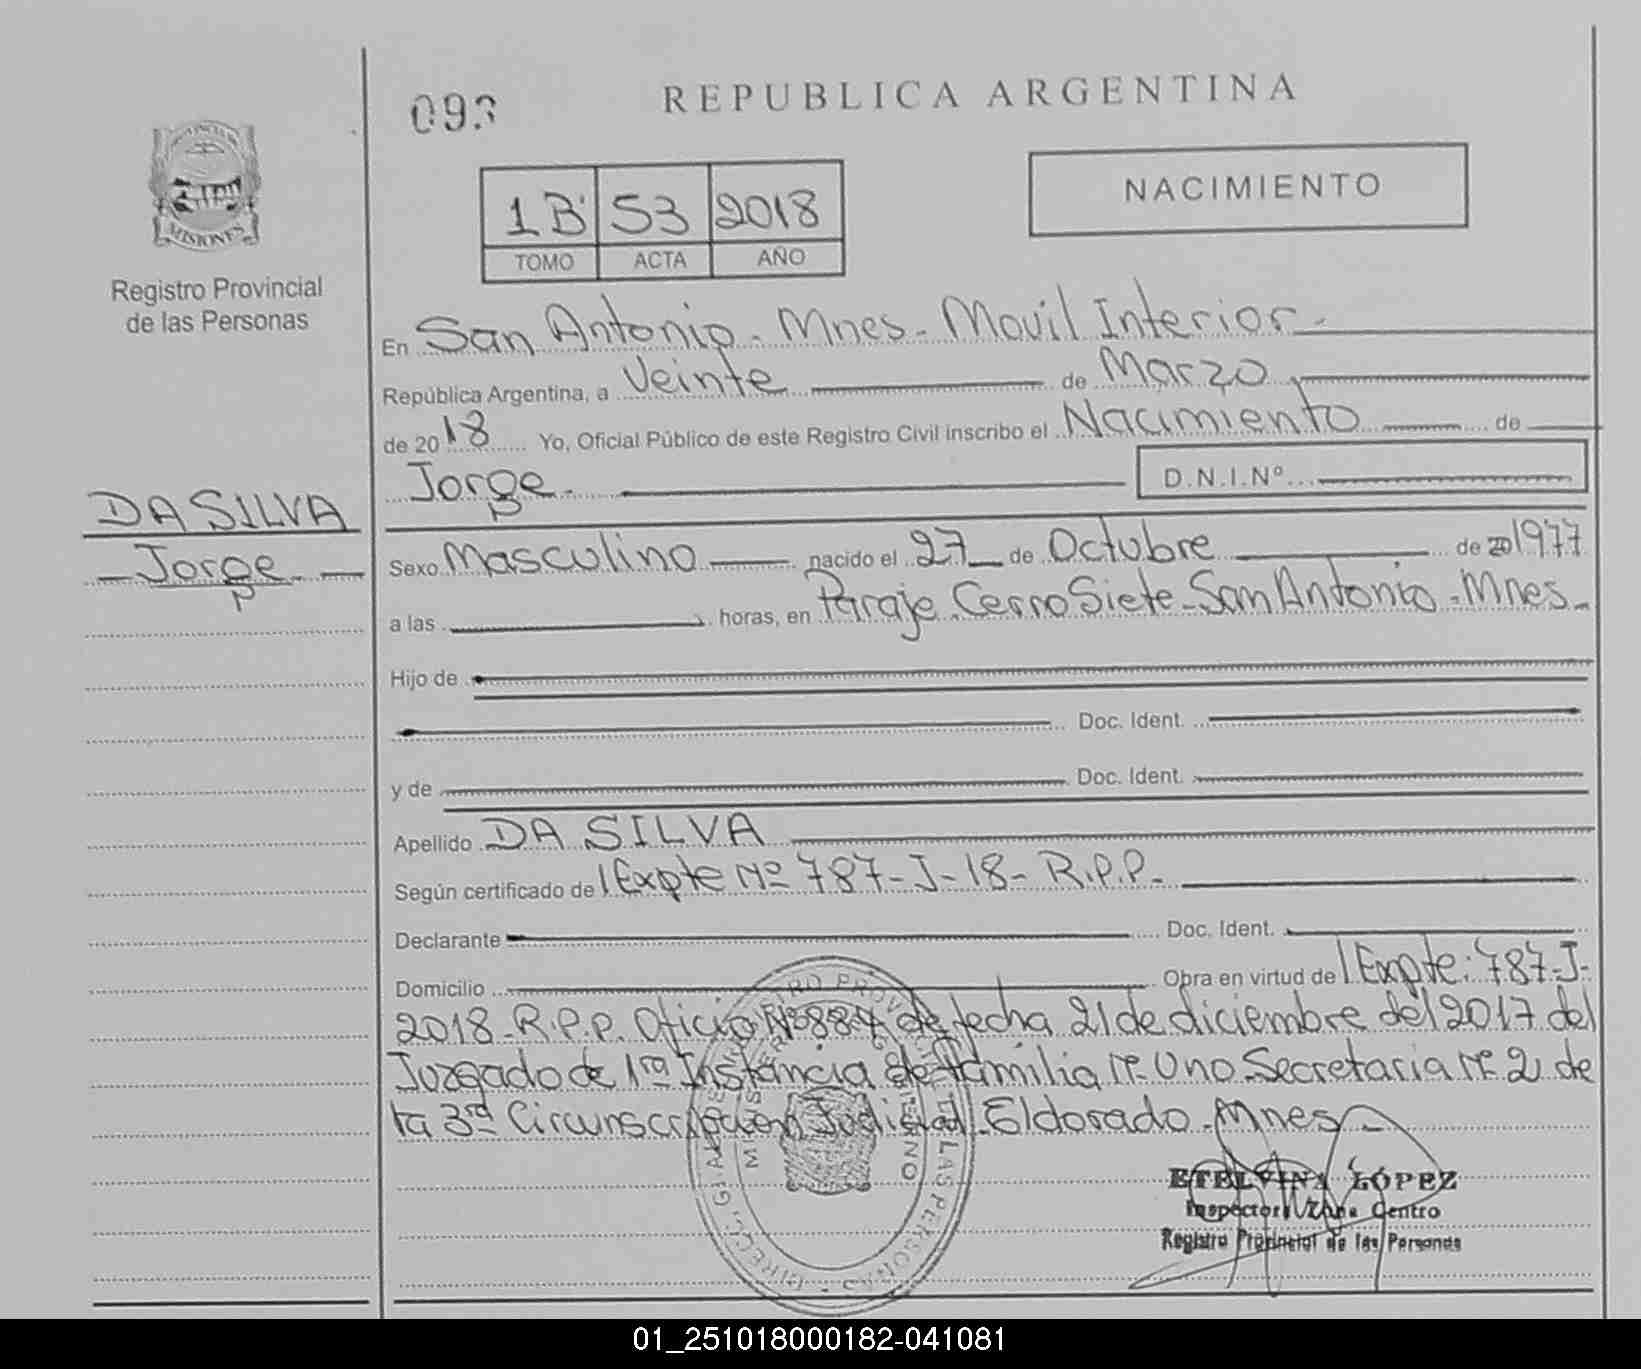 093
REPUBLICA ARGENTINA
MISIONES
Registro Provincial
de las Personas
1B 53 2018
TOMO ACTA AÑO
NACIMIENTO
En San Antonio - Mnes - Movil Interior -
República Argentina, a Veinte de Marzo
de 2018 Yo, Oficial Público de este Registro Civil inscribo el Nacimiento de
Jorge. D.N.I.Nº
DA SILVA
Jorge
Sexo Masculino nacido el 27 de Octubre de 20 1977
a las horas, en Paraje Cerro Siete - San Antonio - Mnes -
Hijo de
Doc. Ident.
y de Doc. Ident.
Apellido DA SILVA
Según certificado de Expte Nº 787-J-18- R.P.P.-
Declarante Doc. Ident.
Domicilio Obra en virtud de Expte: 787-J-
2018-R.P.P. Oficio Nº 884 de fecha 21 de diciembre del 2017 del
Juzgado de 1ra Instancia de familia Nº Uno Secretaria Nº 2 de
la 3ra Circunscripcion Judicial - Eldorado - Mnes -
ETELVINA LÓPEZ
Inspectora Zona Centro
Registro Provincial de las Personas
01_251018000182-041081